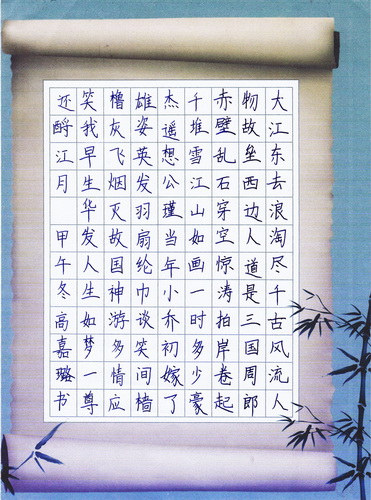 大江东去浪淘尽千古风流人
物故垒西边人道是三国周郎
赤壁乱石穿空惊涛拍岸卷起
千堆雪江山如画一时多少豪
杰遥想公瑾当年小乔初嫁了
雄姿英发羽扇纶巾谈笑间樯
橹灰飞烟灭故国神游多情应
笑我早生华发人生如梦一尊
还酹江月 甲午冬高嘉璐书